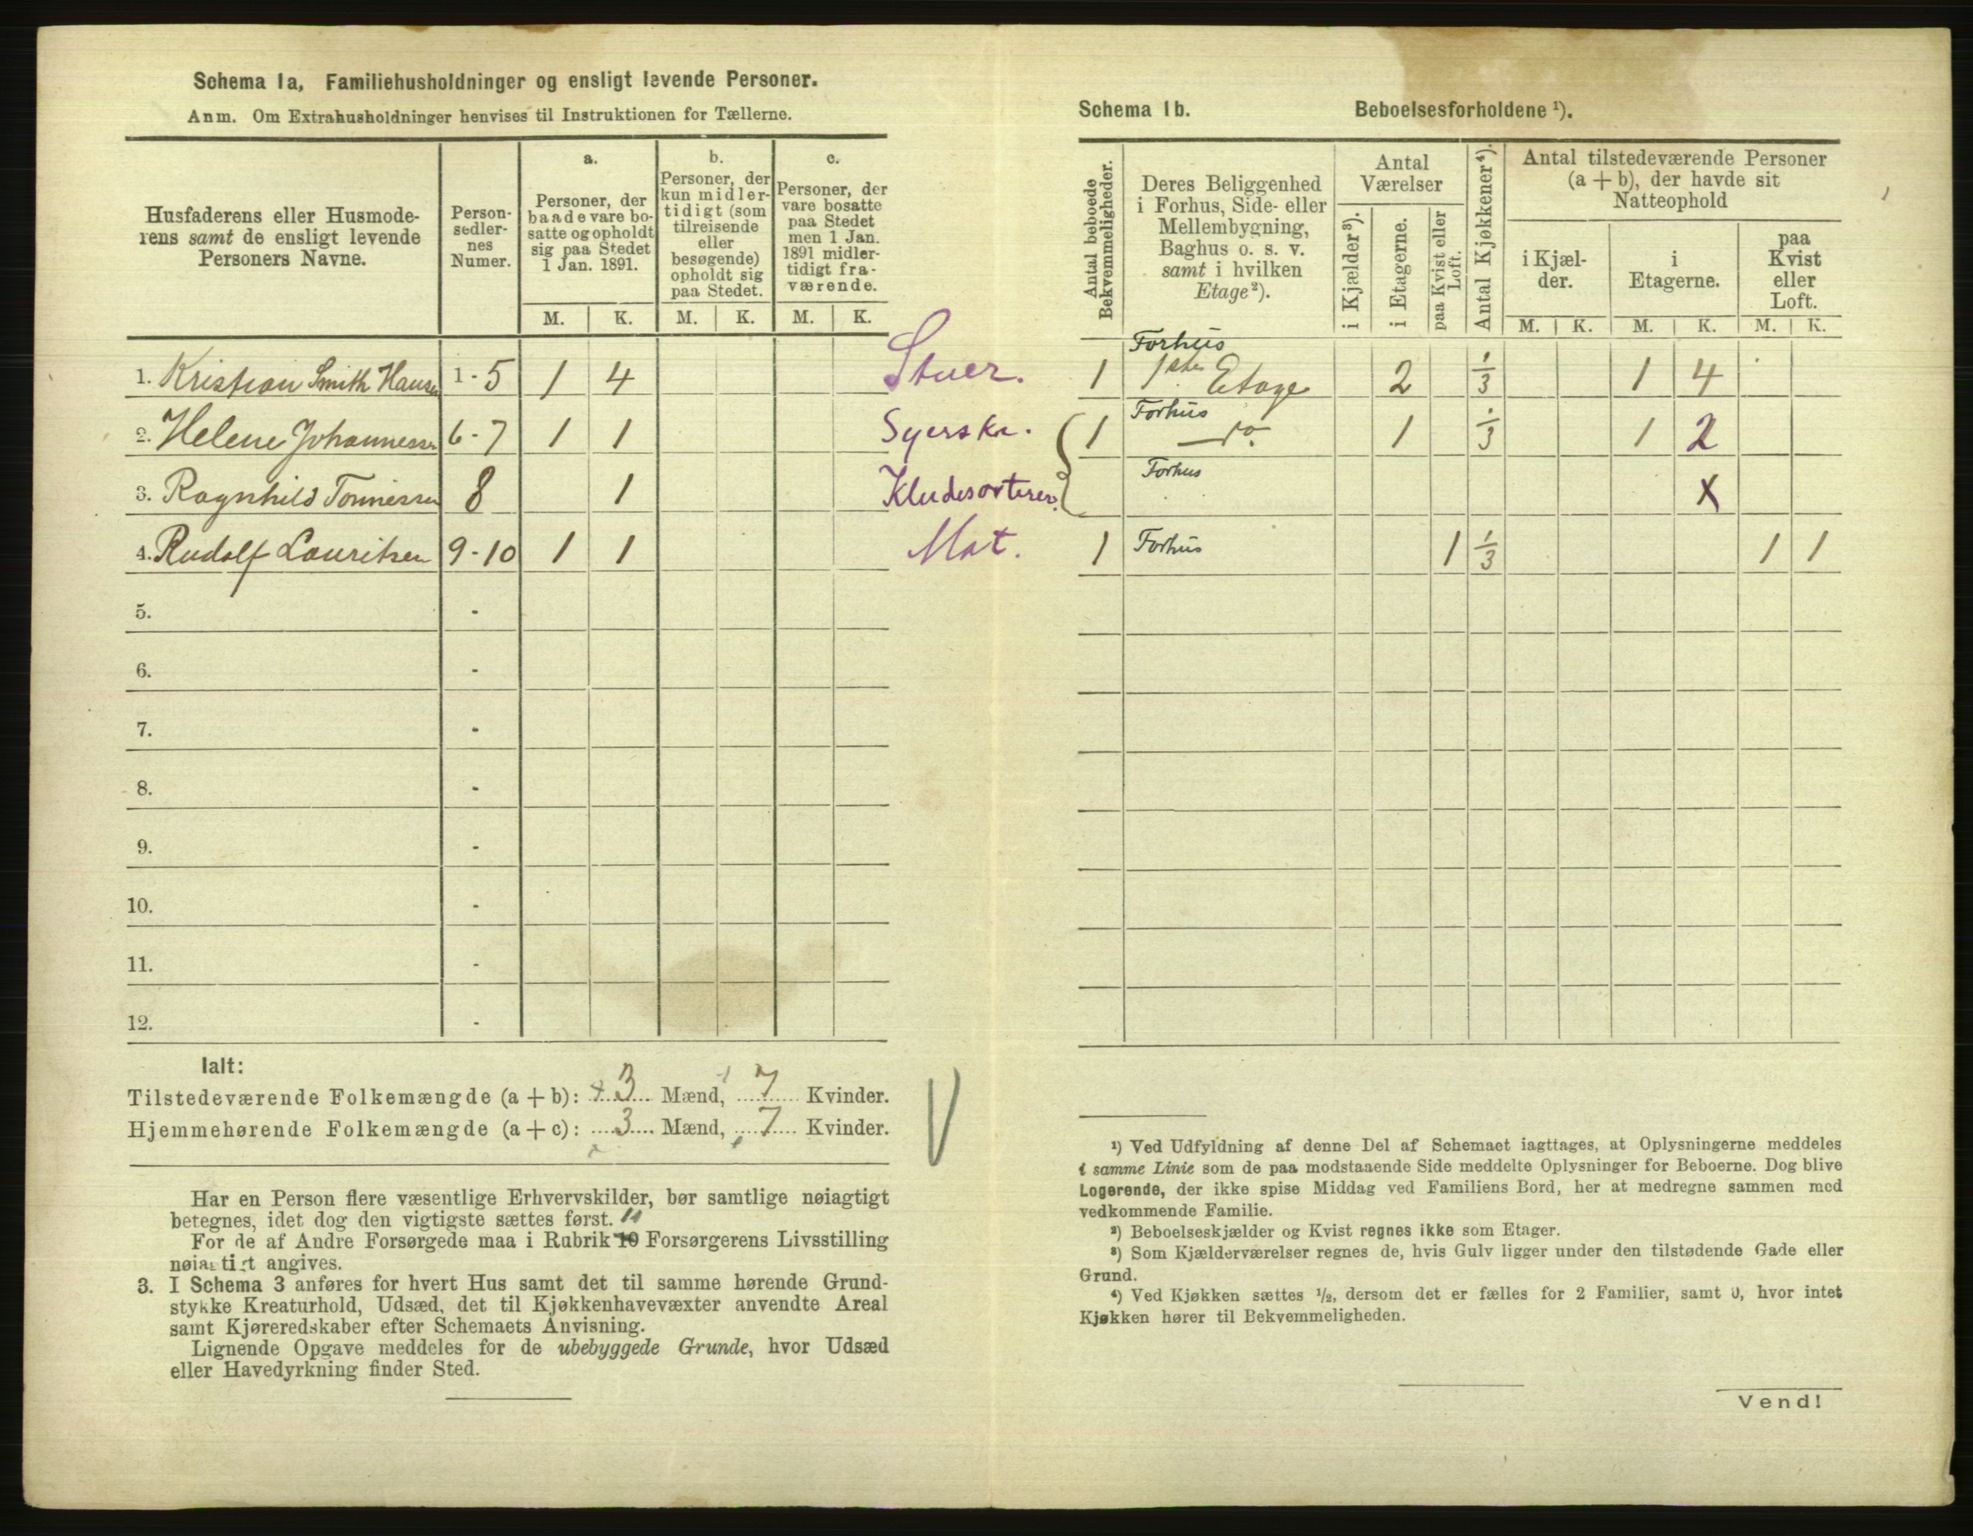 Schema 1a, Familiehusholdninger og ensligt levende Personer.
Anm. Om Extrahusholdninger henvises til Instruktionen for Tællerne.
Husfaderens eller Husmode-
rens samt de ensligt levende
Personers Navne.
Person-
sedler-
nes
Numer.
a.
Personer, der
baade vare bo-
satte og opholdt
sig paa Stedet
1 Jan. 1891.
b.
Personer, der
kun midler-
tidigt (som
tilreisende
eller
besøgende)
opholdt sig
paa Stedet.
c.
Personer, der
vare bosatte
paa Stedet
men 1 Jan.
1891 midler-
tidigt fra-
værende.
M. K. M. K. M. K.
1. Kristian Smith Hansen 1-5 1 4 Stuer.
2. Helene Johannessen 6-7 1 1 Syerske.
3. Ragnhild Tonnessen 8 1 Kludesorterer.
4. Rudolf Lauritsen 9-10 1 1 Mat.
5. -
6. -
7. -
8. -
9. -
10. -
11. -
12. -
Ialt:
Tilstedeværende Folkemængde (a + b): 3 Mænd, 7 Kvinder.
Hjemmehørende Folkemængde (a + c): 3 Mænd, 7 Kvinder.
Har en Person flere væsentlige Erhvervskilder, bør samtlige nøiagtigt
betegnes, idet dog den vigtigste sættes først.
For de af Andre Forsørgede maa i Rubrik 10 Forsørgerens Livsstilling
nøiagtigt angives.
3. I Schema 3 anføres for hvert Hus samt det til samme hørende Grund-
stykke Kreaturhold, Udsæd, det til Kjøkkenhavevæxter anvendte Areal
samt Kjøreredskaber efter Schemaets Anvisning.
Lignende Opgave meddeles for de ubebyggede Grunde, hvor Udsæd
eller Havedyrkning finder Sted.
Schema 1b. Beboelsesforholdene ¹).
Antal beboede
Bekvemmeligheder.
Deres Beliggenhed
i Forhus, Side- eller
Mellembygning,
Baghus o. s. v.
samt i hvilken
Etage²).
Antal
Værelser
i Kjælder³).
i Etagerne.
paa Kvist eller
Loft.
Antal Kjøkkener⁴).
Antal tilstedeværende Personer
(a + b), der havde sit
Natteophold
i Kjæl-
der.
i
Etagerne.
paa
Kvist
eller
Loft.
M. K. M. K. M. K.
Forhus
1 1ste Etage 2 1/3 1 4
Forhus
1 do. 1 1/3 1 2
Forhus
x
1 Forhus 1 1/3 1 1
¹) Ved Udfyldning af denne Del af Schemaet iagttages, at Oplysningerne meddeles
i samme Linie som de paa modstaaende Side meddelte Oplysninger for Beboerne. Dog blive
Logerende, der ikke spise Middag ved Familiens Bord, her at medregne sammen med
vedkommende Familie.
²) Beboelseskjælder og Kvist regnes ikke som Etager.
³) Som Kjælderværelser regnes de, hvis Gulv ligger under den tilstødende Gade eller
Grund.
⁴) Ved Kjøkken sættes ¹/₂, dersom det er fælles for 2 Familier, samt 0, hvor intet
Kjøkken hører til Bekvemmeligheden.
Vend!